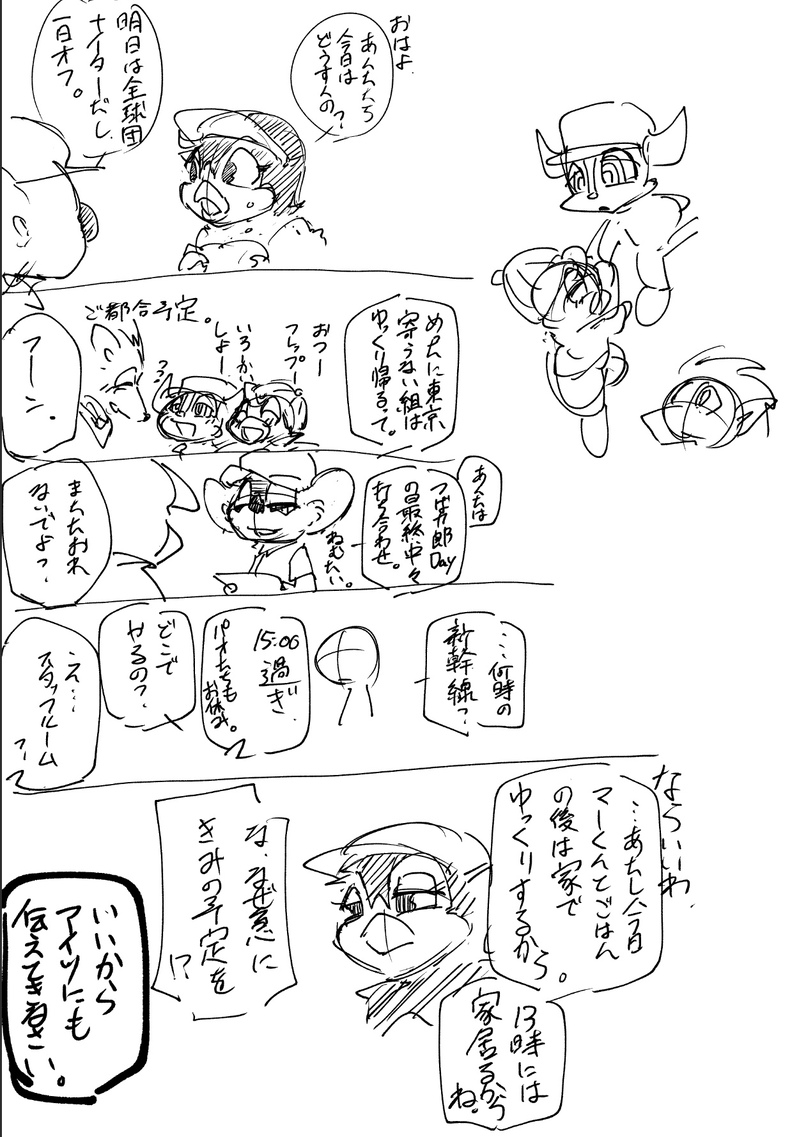 おはよ
あんたたち
今日は
どうすんの?
明日は全球団
ナイターだし、
一日オフ。
めちに東京
寄らない組は
ゆっくり帰るって。
おつー
フレップー
いろかい
しよー
ご都合予定。
フーン.
あんたは
つば九郎Day
の最終
打ち合わせ。
ねむたい。
またおれ
ないでよ?
…何時の
新幹線?
15:00
過ぎ.
パオたちも
お休み。
どこで
やるの?
え…
スタッフルーム
?
ならいいわ.
…あたし今日
マーくんとごはん
の後は家で
ゆっくりするから。
13時には
家居るから
ね。
な、なぜ急に
きみの予定を
!?
いいから
アイツにも
伝えてきなさい。